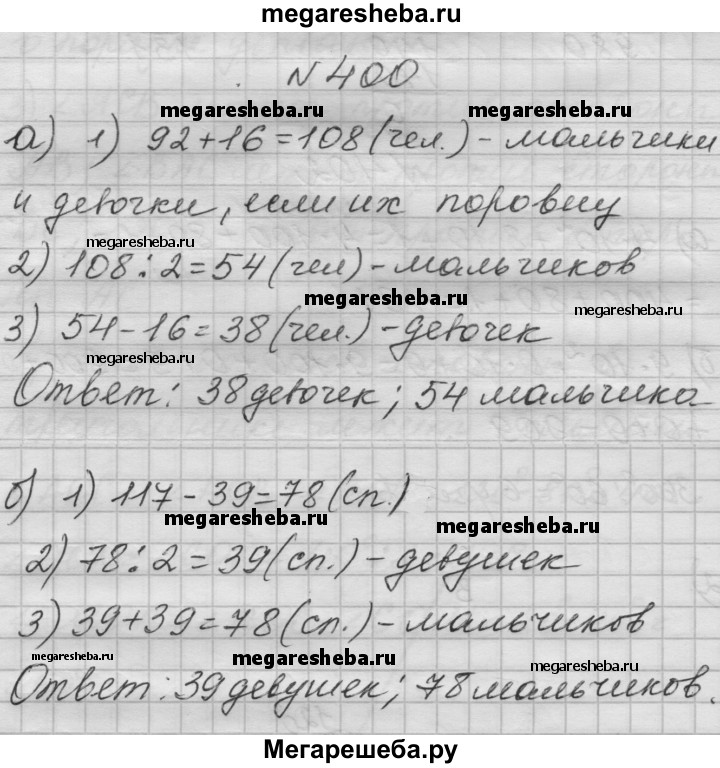 megaresheba.ru
№400
megaresheba.ru megaresheba.ru
а) 1) 92+16=108(чел.) - мальчики
и девочки, если их поровну
megaresheba.ru
2) 108:2=54(чел) - мальчиков
megaresheba.ru megaresheba.ru
3) 54-16=38(чел.) - девочек
megaresheba.ru
Ответ: 38 девочек; 54 мальчика
б) 1) 117-39=78(сп.)
megaresheba.ru megaresheba.ru
2) 78:2=39(сп.) - девушек
3) 39+39=78(сп.) - мальчиков
megaresheba.ru megaresheba.ru megaresheba.ru
Ответ: 39 девушек; 78 мальчиков.
Мегарешеба.ру